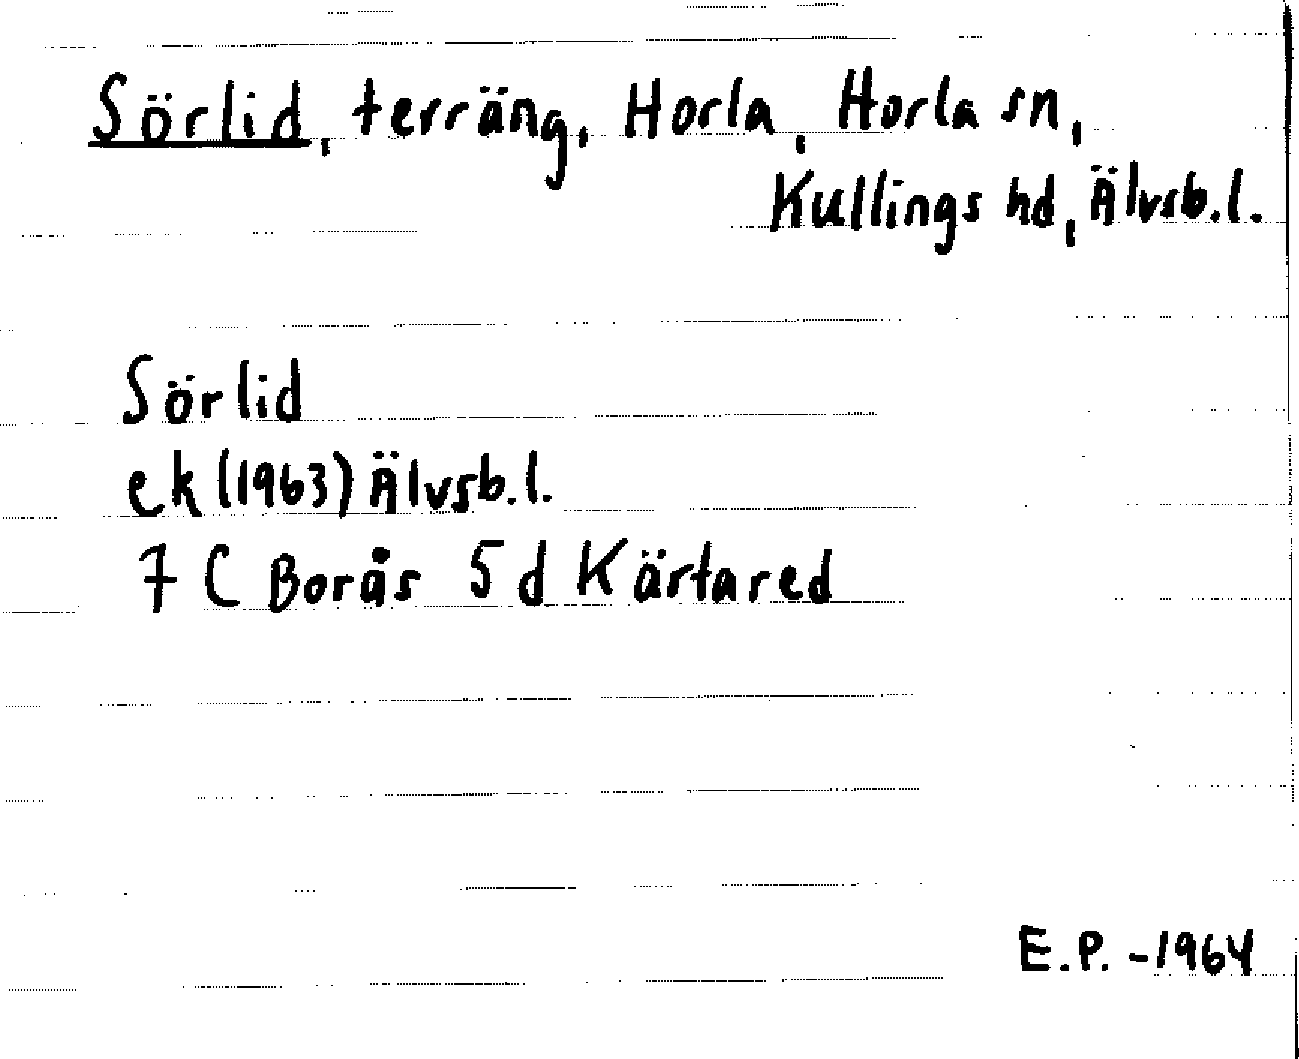 Sörlid, terräng, Horla, Horla sn,
Kullings hd, Älvsb.l.
Sörlid
ek (1963) Älvsb.l.
7 C Borås 5 d Kärtared
E.P. -1964